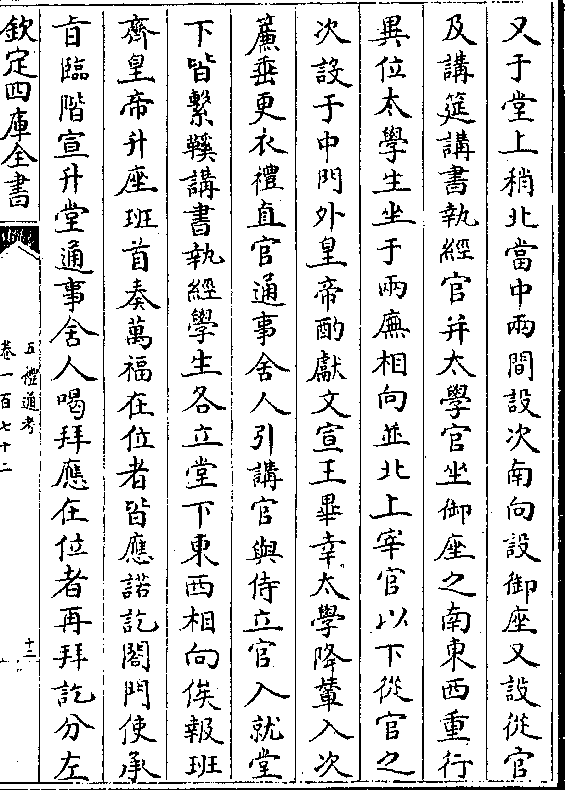 又于堂上稍北當中兩間設次南向設御座又設從官
及講筵講書執經官并太學官坐御座之南東西重行
異位太學生坐于兩廡相向並北上宰官以下從官之
次設于中門外皇帝酌獻文宣王畢幸太學降輦入次
簾垂更衣禮直官通事舍人引講官與侍立官入就堂
下皆繫鞵講書執經學生各立堂下東西相向俟報班
齊皇帝升座班首奏萬福在位者皆應諾訖閤門使承
㫖臨階宣升堂通事舍人喝拜應在位者再拜訖分左
欽定四庫全書
五禮通考
卷一百七十二
十三